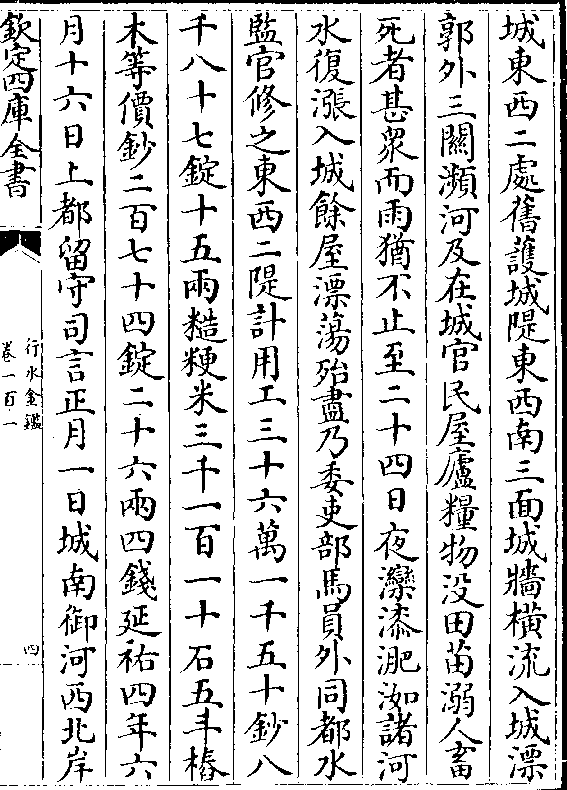 城東西二處舊護城隄東西南三面城牆橫流入城漂
郭外三關瀕河及在城官民屋廬糧物没田苗溺人畜
死者甚衆而雨猶不止至二十四日夜灤漆淝洳諸河
水復漲入城餘屋漂蕩殆盡乃委吏部馬員外同都水
監官修之東西二隄計用工三十六萬一千五十鈔八
千八十七錠十五兩糙粳米三千一百一十石五斗樁
木等價鈔二百七十四錠二十六兩四錢延祐四年六
月十六日上都留守司言正月一日城南御河西北岸
欽定四庫全書
行水金鑑
卷一百一
四